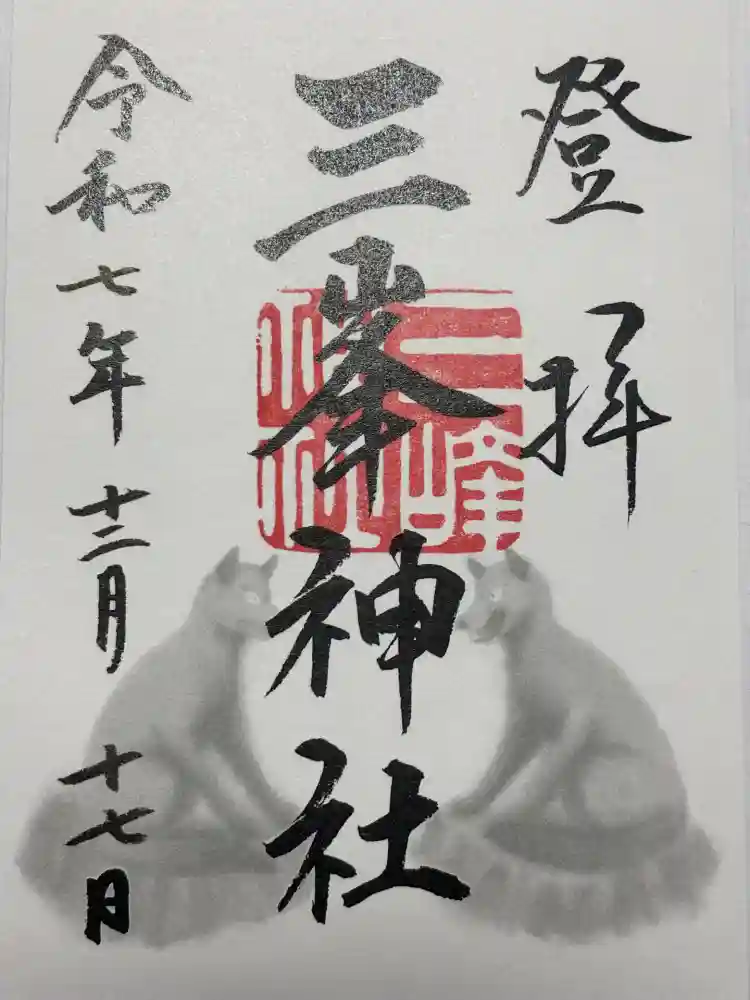 登拝
三峯神社
三峰神社
令和七年十二月十七日